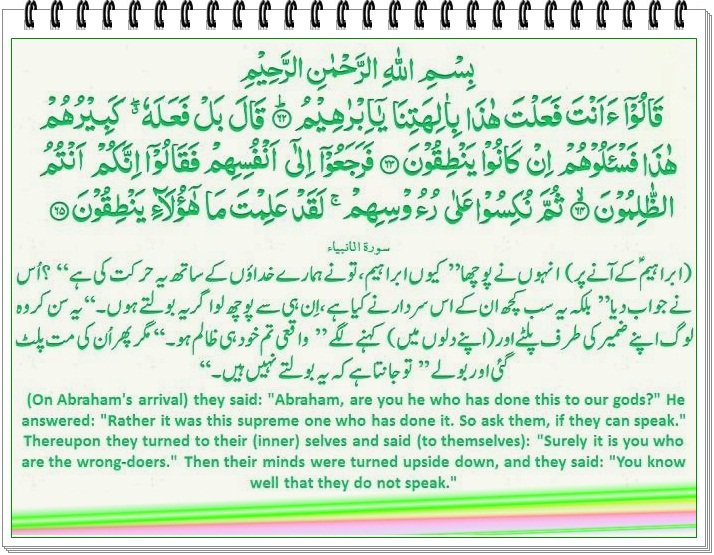 بِسْمِ اللهِ الرَّحْمٰنِ الرَّحِيْمِ
قَالُوْٓا ءَاَنْتَ فَعَلْتَ هٰذَا بِاٰلِهَتِنَا يٰٓاِبْرٰهِيْمُ ۟ؕ۶۲ قَالَ بَلْ فَعَلَهٗ ۖۗ كَبِيْرُهُمْ
هٰذَا فَسْـَٔلُوْهُمْ اِنْ كَانُوْا يَنْطِقُوْنَ ۶۳ فَرَجَعُوْٓا اِلٰٓى اَنْفُسِهِمْ فَقَالُوْٓا اِنَّكُمْ اَنْتُمُ
الظّٰلِمُوْنَ ۙ۶۴ ثُمَّ نُكِسُوْا عَلٰى رُءُوْسِهِمْ ۚ لَقَدْ عَلِمْتَ مَا هٰٓؤُلَآءِ يَنْطِقُوْنَ ۶۵
سورة الانبیاء
(ابراہیمؑ کے آنے پر) انہوں نے پوچھا ”کیوں ابراہیم، تو نے ہمارے خداؤں کے ساتھ یہ حرکت کی ہے“ ؟ اُس
نے جواب دیا ” بلکہ یہ سب کچھ ان کے اس سردار نے کیا ہے، اِن ہی سے پوچھ لو اگر یہ بولتے ہوں۔“ یہ سن کر وہ
لوگ اپنے ضمیر کی طرف پلٹے اور (اپنے دلوں میں) کہنے لگے ” واقعی تم خود ہی ظالم ہو۔“ مگر پھر اُن کی مت پلٹ
گئی اور بولے ” تو جانتا ہے کہ یہ بولتے نہیں ہیں۔“
(On Abraham's arrival) they said: "Abraham, are you he who has done this to our gods?" He
answered: "Rather it was this supreme one who has done it. So ask them, if they can speak."
Thereupon they turned to their (inner) selves and said (to themselves): "Surely it is you who
are the wrong-doers." Then their minds were turned upside down, and they said: "You know
well that they do not speak."